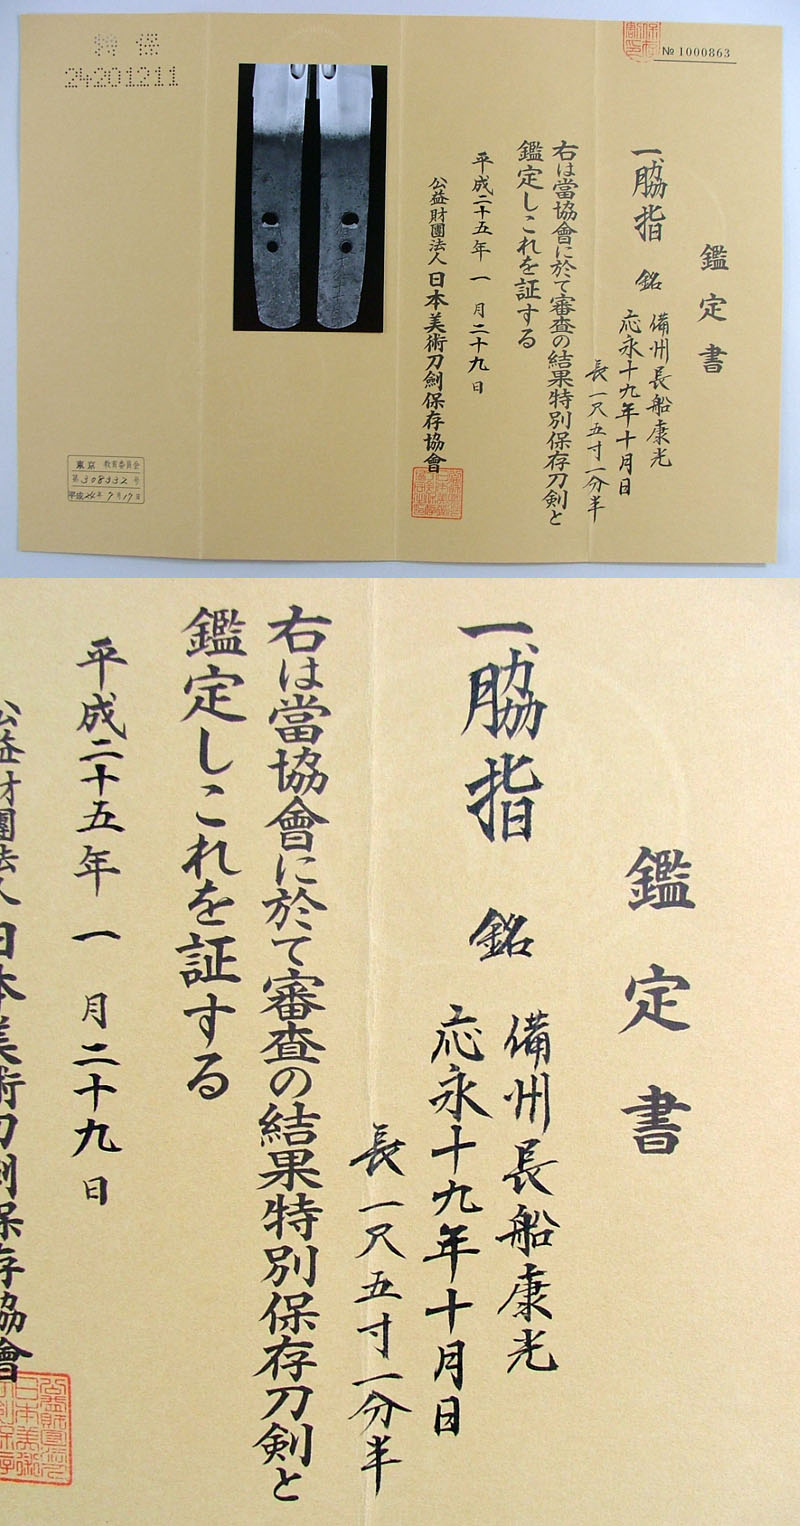 № 1000863
鑑定書
一、脇指 銘 備州長船康光
応永十九年十月日
長一尺五寸一分半
右は當協會に於て審査の結果特別保存刀剣と
鑑定しこれを証する
平成二十五年一月二十九日
公益財團法人日本美術刀劍保存協會
特保
24201211
東京 教育委員会
第308332号
平成24年7月17日
鑑定書
一、脇指 銘 備州長船康光
応永十九年十月日
長一尺五寸一分半
右は當協會に於て審査の結果特別保存刀剣と
鑑定しこれを証する
平成二十五年一月二十九日
公益財團法人日本美術刀劍保存協會